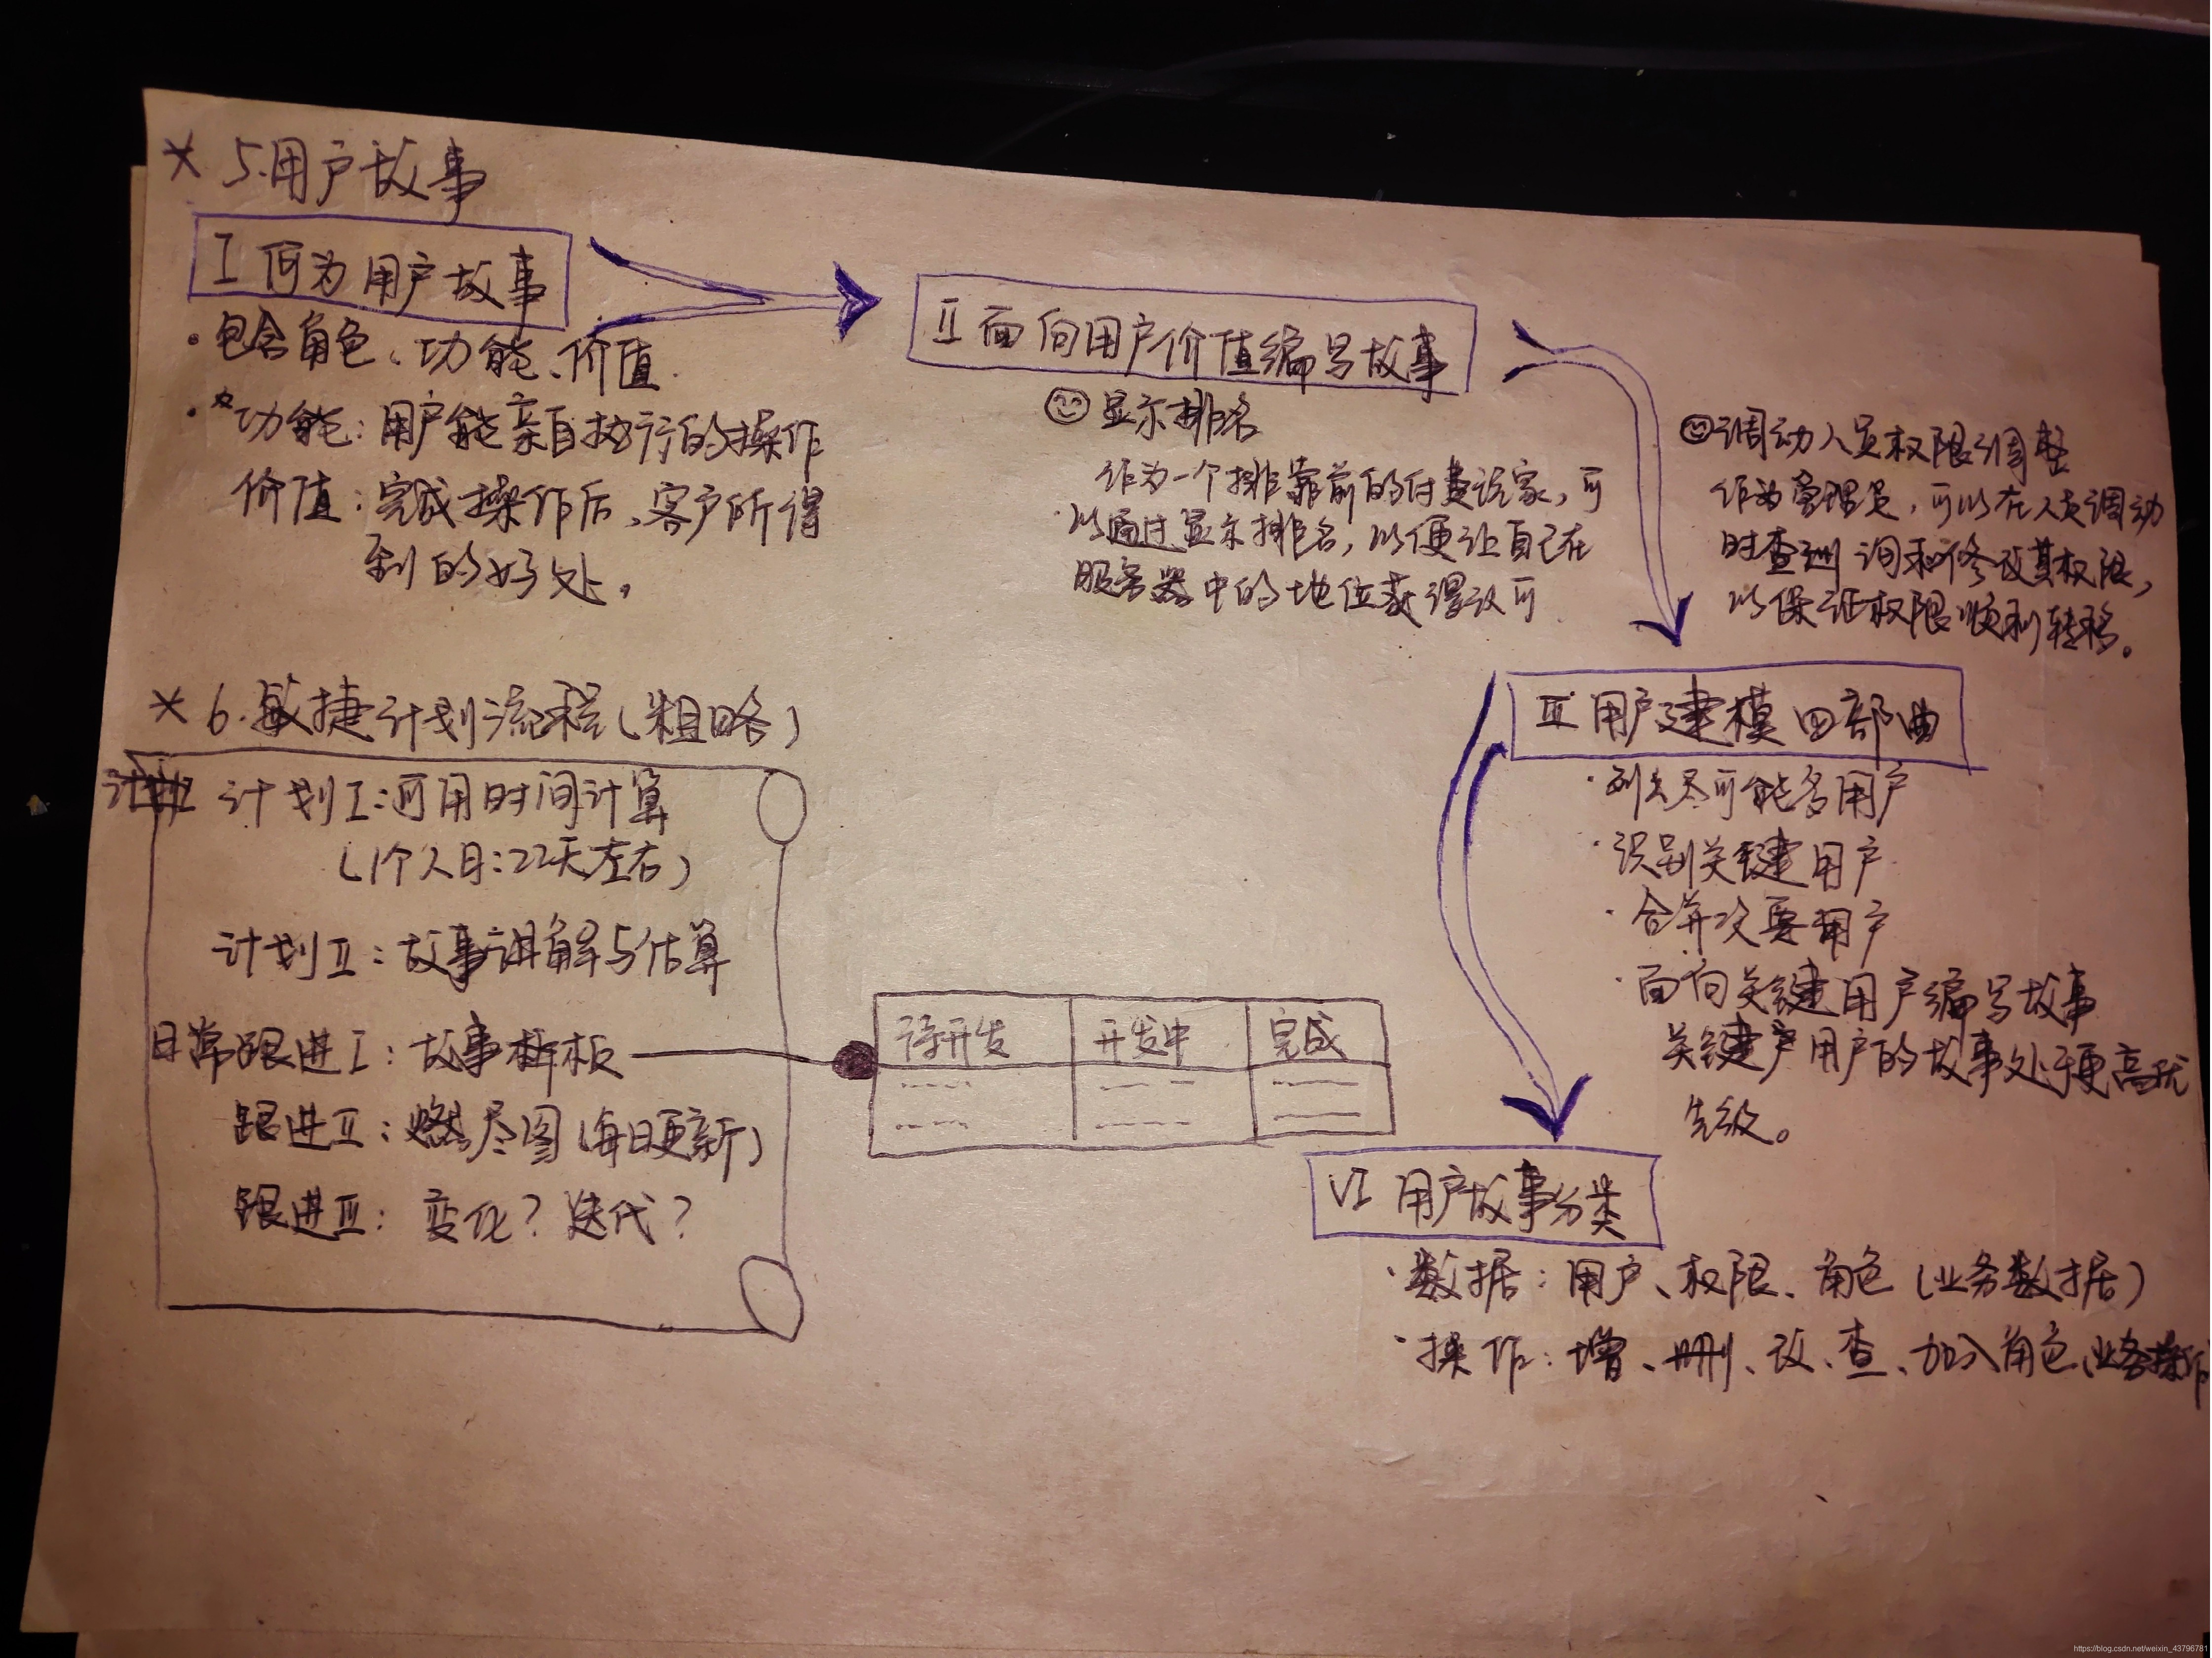 * 5.用户故事
I 何为用户故事
·包含角色、功能、价值.
·*功能：用户能亲自执行的操作
价值：完成操作后，客户所得
到的好处。
II 面向用户价值编写故事
显示排名
作为一个排靠前的付费玩家，可
以通过显示排名，以便让自己在
服务器中的地位获得认可
调动人员权限调整
作为管理员，可以在人员调动
时查询和修改其权限，
以保证权限顺利转移。
III 用户建模四部曲
·列出尽可能多用户
·识别关键用户
·合并次要用户
·面向关键用户编写故事
关键用户的故事处于更高优
先级。
VI 用户故事分类
·数据：用户、权限、角色（业务数据）
·操作：增、删、改、查、加入角色、业务操作
* 6.敏捷计划流程（粗略）
计划I：可用时间计算
（1个人月：22天左右）
计划II：故事讲解与估算
日常跟进I：故事板
待开发 开发中 完成
跟进II：燃尽图（每日更新）
跟进III：变化？迭代？
https://blog.csdn.net/weixin_43796781